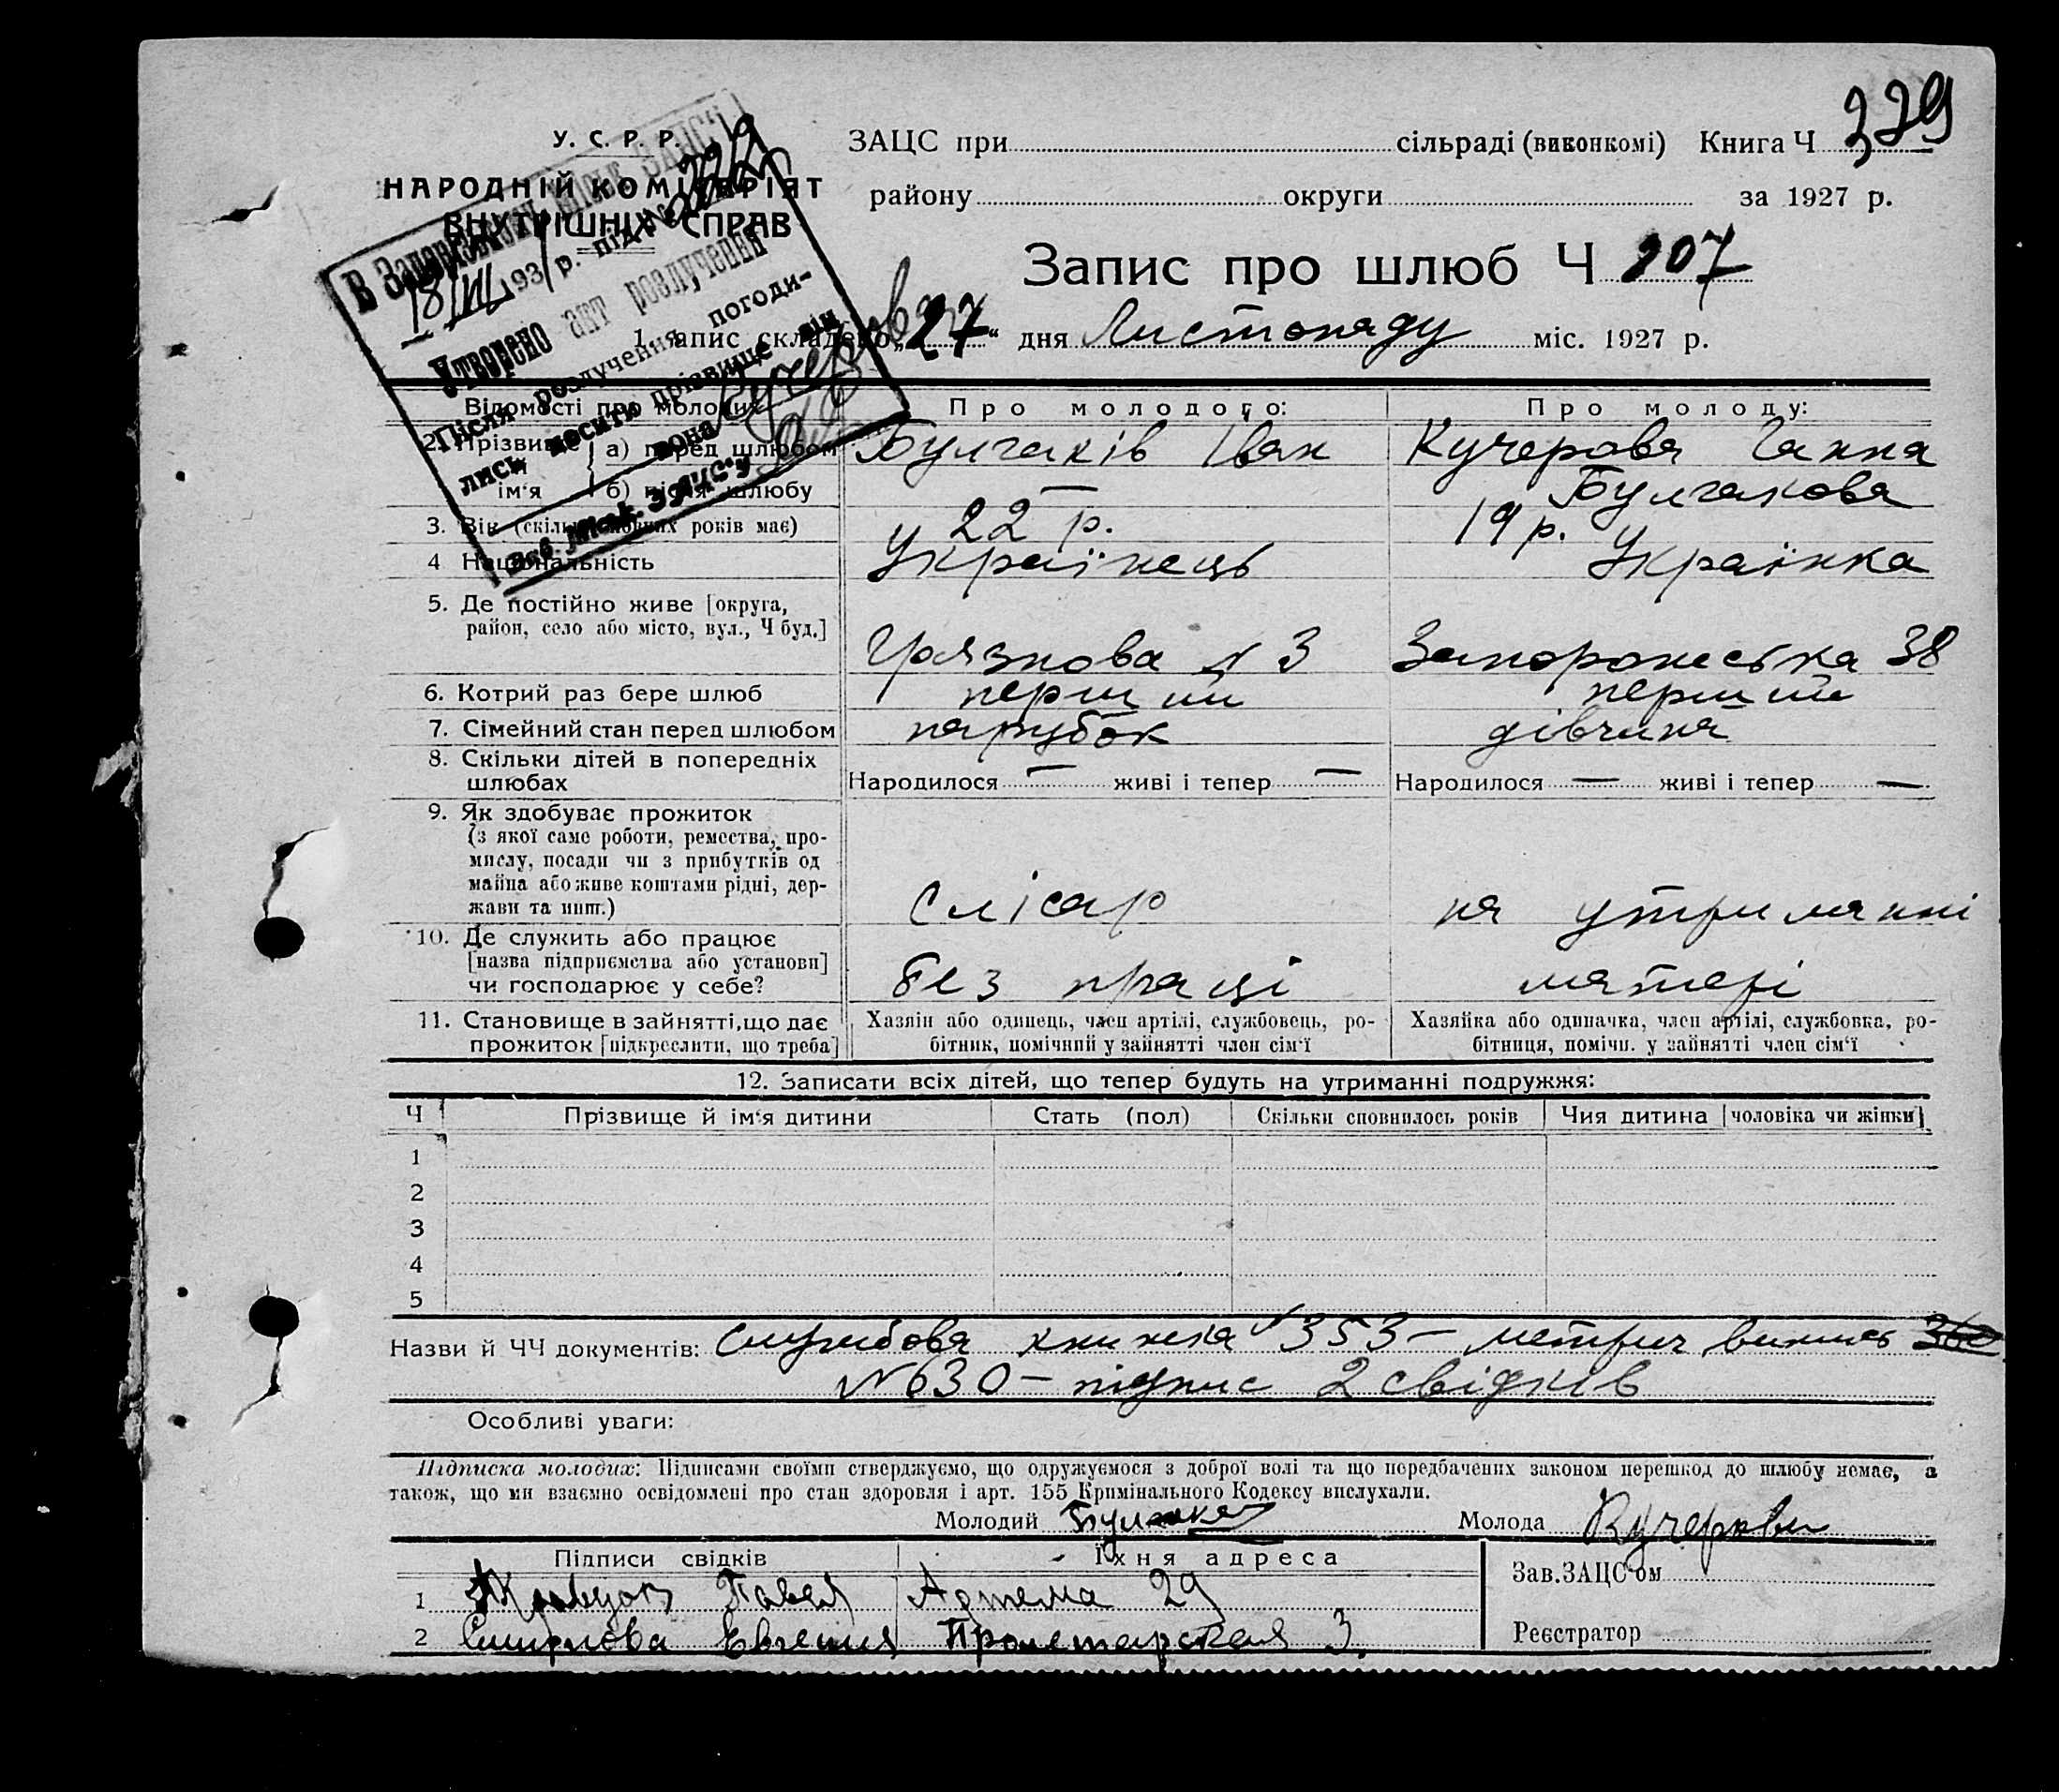 У. С. Р. Р.
НАРОДНІЙ КОМІСАРІЯТ
ВНУТРІШНІХ СПРАВ
ЗАЦС при сільраді (виконкомі) Книга Ч 329
району округи за 1927 р.
Запис про шлюб Ч 907
1. Запис складено „27“ дня Листопаду міс. 1927 р.
В Запорізькому Міськ. ЗАЦС'і
18/VII 1931 р. під №
Утворено акт розлучення
Після розлучення погоди-
лись носити прізвище він
вона Кучерова
Зав. Міськ. ЗАЦС'у
Відомості про молодих Про молодого: Про молоду:
2. Прізвище ім'я а) перед шлюбом Булгаків Іван Кучерова Ганна
б) після шлюбу — Булгакова
3. Вік (скільки повних років має) 22 р. 19 р.
4 Національність Українець Українка
5. Де постійно живе [округа,
район, село або місто, вул., Ч буд.]
Грязнова № 3 Запорожська 38
6. Котрий раз бере шлюб перший перший
7. Сімейний стан перед шлюбом парубок дівчина
8. Скільки дітей в попередніх
шлюбах Народилося — живі і тепер — Народилося — живі і тепер —
9. Як здобуває прожиток
(з якої саме роботи, ремества, про-
мислу, посади чи з прибутків од
майна або живе коштами рідні, дер-
жави та инш.) Слісар на утриманні
10. Де служить або працює
[назва підприємства або установи]
чи господарює у себе? без праці матері
11. Становище в зайнятті, що дає Хазяін або одинець, член артілі, службовець, ро- Хазяйка або одиначка, член артілі, службовка, ро-
прожиток [підкреслити, що треба] бітник, помічний у зайнятті член сім'ї бітниця, помічн. у зайнятті член сім'ї
12. Записати всіх дітей, що тепер будуть на утриманні подружжя:
Ч Прізвище й ім'я дитини Стать (пол) Скільки сповнилось років Чия дитина [чоловіка чи жінки]
1
2
3
4
5
Назви й ЧЧ документів: Службова книжка 353 — метрич випись
№ 630 — підпис 2 свідків
Особливі уваги:
Підписка молодих: Підписами своїми стверджуємо, що одружуємося з доброї волі та що передбачених законом перешкод до шлюбу немає, а
також, що ми взаємно освідомлені про стан здоровля і арт. 155 Кримінального Кодексу вислухали.
Молодий Молода Кучерова
Підписи свідків Їхня адреса Зав. ЗАЦС'ом
1 Павел Артема 29
2 Смирнова Евгения Пролетарская 3.
Реєстратор